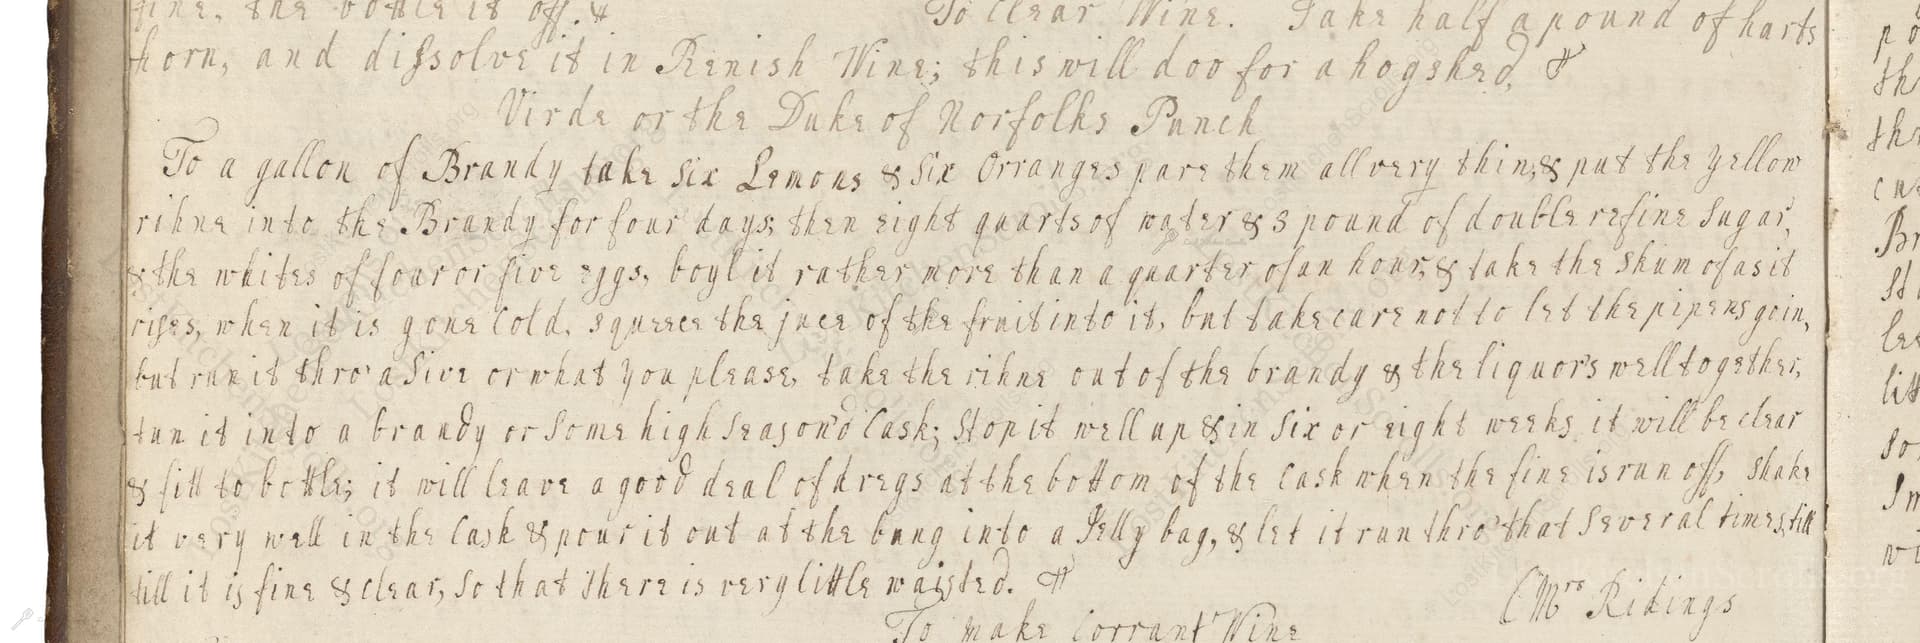 fine, the bottle it off.
To Clear Wine. Take half a pound of harts
horn, and dissolve it in Renish Wine; this will doo for a hogshed,
Virde or the Duke of Norfolks Punch
To a gallon of Brandy take six Lemons & six Orranges pare them all very thin, & put the yellow
rihne into the Brandy for four days; then eight quarts of water & 3 pound of double refine sugar,
& the whites of four or five eggs, boyl it rather more than a quarter of an hour, & take the skum of as it
rises, when it is gone Cold, squeece the juce of the fruit into it, but take care not to let the pipens go in,
but run it thro' a sive or what you please, take the rihne out of the brandy & the liquors well together,
tun it into a brandy or some high season'd Cask; stop it well up & in six or eight weeks it will be clear
& fitt to bottle; it will leave a good deal of dregs at the bottom of the Cask when the fine is run off, shake
it very well in the Cask & pour it out at the bung into a Jelly bag, & let it run thro' that several times, till
till it is fine & clear, so that there is very little waisted.
Mrs Ridings
To make Corrant Wine